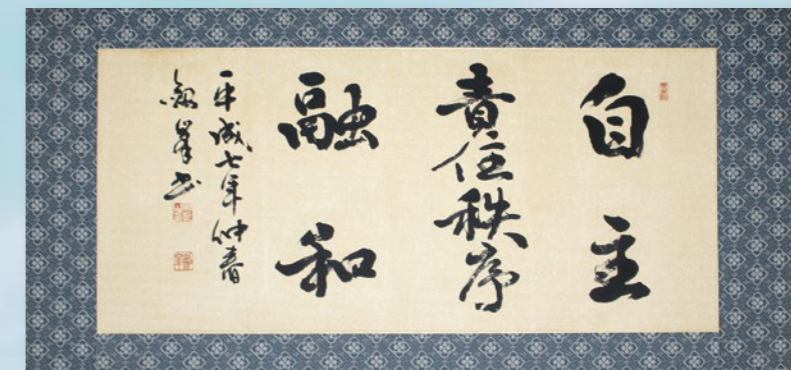 自主
責任秩序
融和
平成七年仲春
書